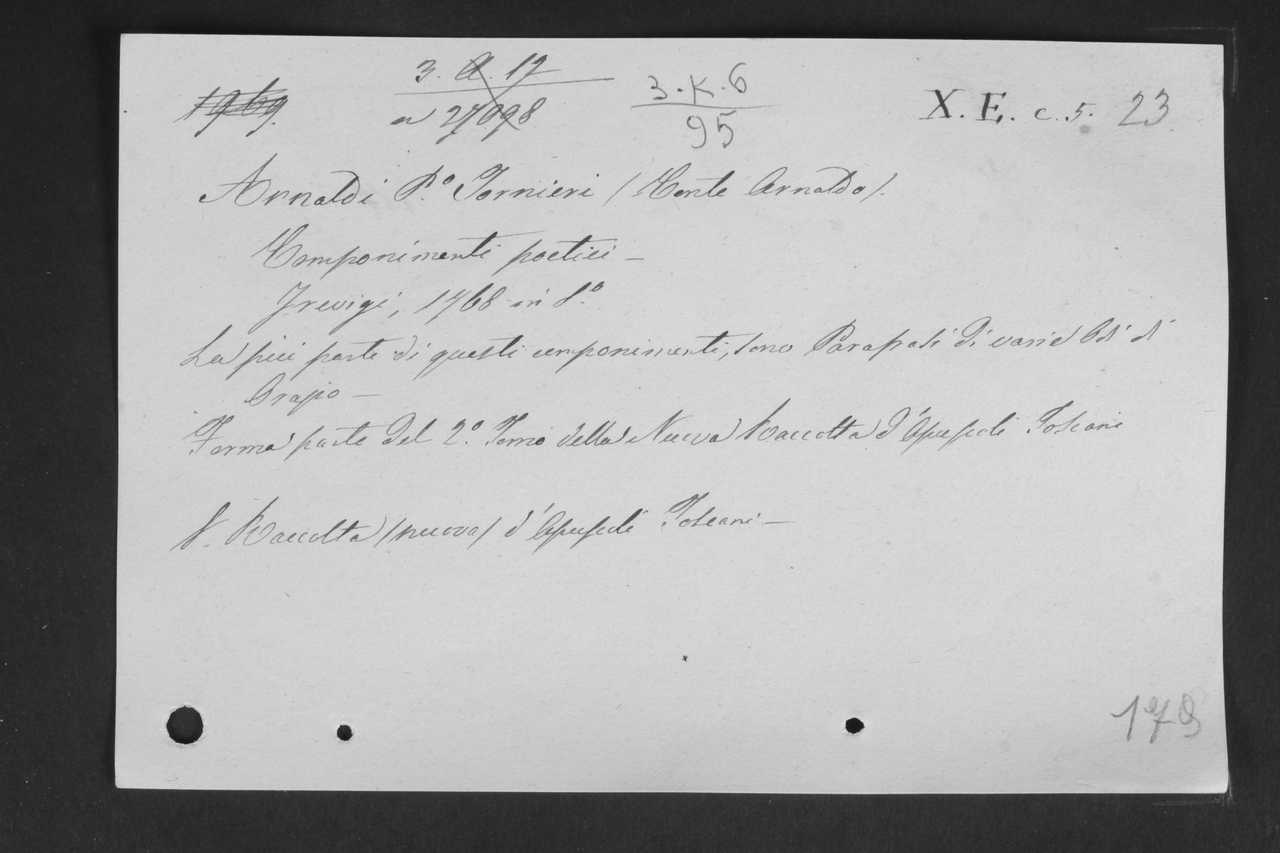 1969.
3. A. 17
a 27098
3.K.6
95
X. E. c. 5. 23
Arnaldi P.º Tornieri (Conte Arnaldo).
Componimenti poetici —
Trevigi, 1768 in 8.º
La più parte di questi componimenti, sono Parafrasi di varie Odi di
Orazio —
Forma parte del 2.º Tomo della Nuova Raccolta d'Opuscoli Toscani
V. Raccolta (nuova) d'Opuscoli Toscani —